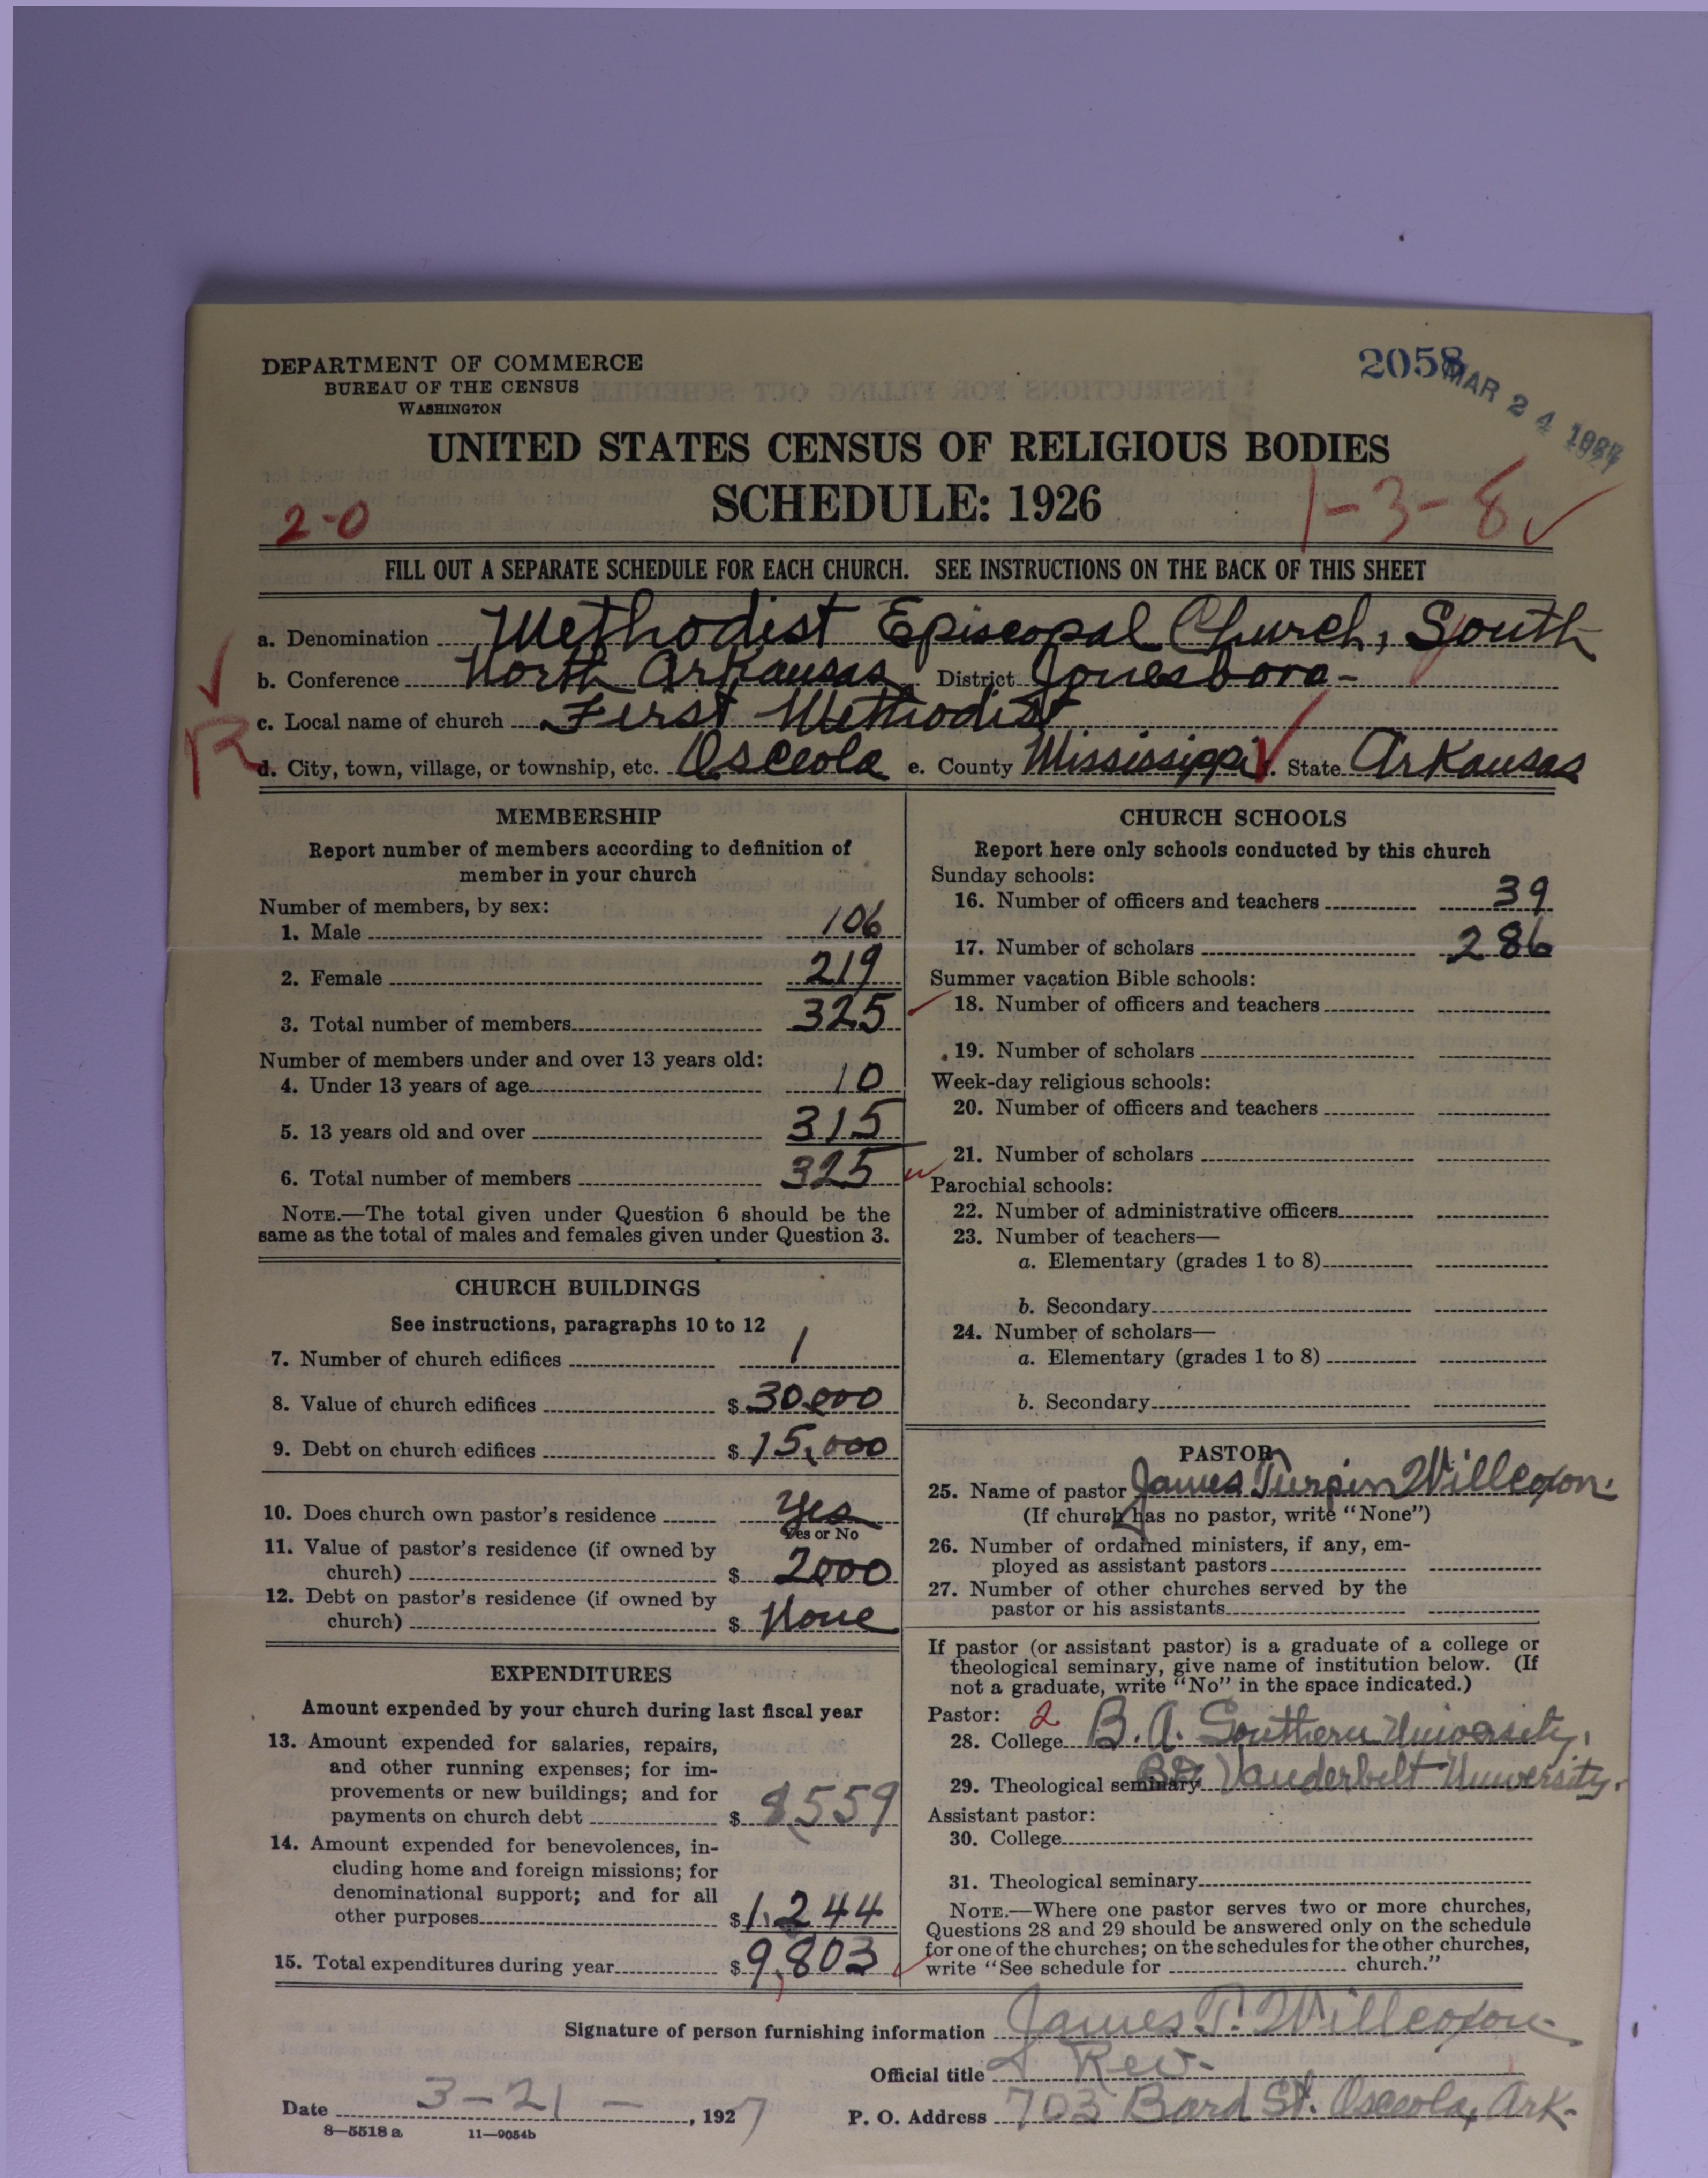 DEPARTMENT OF COMMERCE
BUREAU OF THE CENSUS
WASHINGTON
2058
MAR 24 1927
UNITED STATES CENSUS OF RELIGIOUS BODIES
SCHEDULE: 1926
2-0
1-3-8
FILL OUT A SEPARATE SCHEDULE FOR EACH CHURCH. SEE INSTRUCTIONS ON THE BACK OF THIS SHEET
a. Denomination Methodist Episcopal Church, South
b. Conference North Arkansas District Jonesboro-
c. Local name of church First Methodist
R
d. City, town, village, or township, etc. Osceola e. County Mississippi State Arkansas
MEMBERSHIP
Report number of members according to definition of
member in your church
Number of members, by sex:
1. Male 106
2. Female 219
3. Total number of members 325
Number of members under and over 13 years old:
4. Under 13 years of age 10
5. 13 years old and over 315
6. Total number of members 325
NOTE.—The total given under Question 6 should be the
same as the total of males and females given under Question 3.
CHURCH BUILDINGS
See instructions, paragraphs 10 to 12
7. Number of church edifices 1
8. Value of church edifices $ 30,000
9. Debt on church edifices $ 15,000
10. Does church own pastor's residence Yes
Yes or No
11. Value of pastor's residence (if owned by
church) $ 2000
12. Debt on pastor's residence (if owned by
church) $ None
EXPENDITURES
Amount expended by your church during last fiscal year
13. Amount expended for salaries, repairs,
and other running expenses; for im-
provements or new buildings; and for
payments on church debt $ 8,559
14. Amount expended for benevolences, in-
cluding home and foreign missions; for
denominational support; and for all
other purposes $ 1,244
15. Total expenditures during year $ 9,803
CHURCH SCHOOLS
Report here only schools conducted by this church
Sunday schools:
16. Number of officers and teachers 39
17. Number of scholars 286
Summer vacation Bible schools:
18. Number of officers and teachers
19. Number of scholars
Week-day religious schools:
20. Number of officers and teachers
21. Number of scholars
Parochial schools:
22. Number of administrative officers
23. Number of teachers—
a. Elementary (grades 1 to 8)
b. Secondary
24. Number of scholars—
a. Elementary (grades 1 to 8)
b. Secondary
PASTOR
25. Name of pastor James Turpin Willcoxon.
(If church has no pastor, write "None")
26. Number of ordained ministers, if any, em-
ployed as assistant pastors
27. Number of other churches served by the
pastor or his assistants
If pastor (or assistant pastor) is a graduate of a college or
theological seminary, give name of institution below. (If
not a graduate, write "No" in the space indicated.)
Pastor: 2
28. College B.A. Southern University.
29. Theological seminary B.D. Vanderbelt University.
Assistant pastor:
30. College
31. Theological seminary
NOTE.—Where one pastor serves two or more churches,
Questions 28 and 29 should be answered only on the schedule
for one of the churches; on the schedules for the other churches,
write "See schedule for church."
Signature of person furnishing information James T. Willcoxon
Official title Rev-
Date 3-21-, 1927
P. O. Address 703 Bard St. Osceola, Ark-
8—5518 a 11—9054b